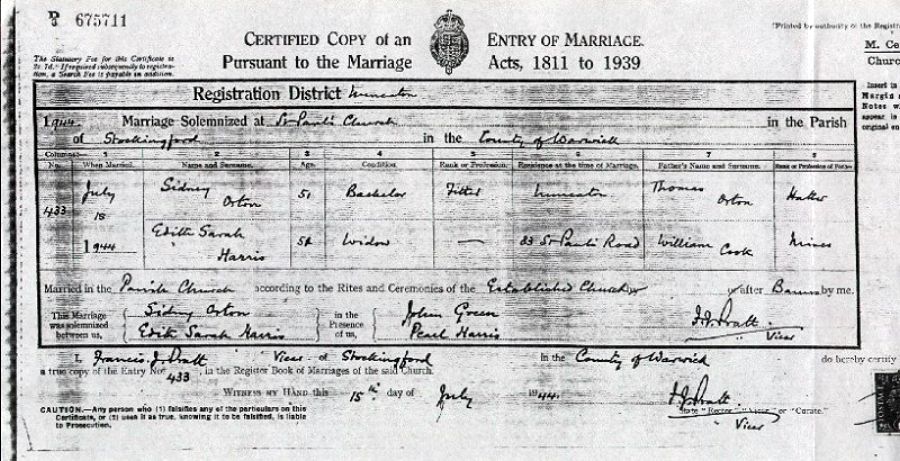 675711
CERTIFIED COPY of an ENTRY OF MARRIAGE.
Pursuant to the Marriage Acts, 1811 to 1939
"Printed by authority of the Registr
M. Ce
Churc
The Statutory Fee for this Certificate is
2s 7d. If required subsequently to registra-
tion, a Search Fee is payable in addition.
Insert in
Margin
Notes w
appear i
original en
Registration District Nuneaton
1944 Marriage Solemnized at St Paul's Church in the Parish
of Stockingford in the County of Warwick
Columns:— 1 2 3 4 5 6 7 8
No. When Married. Name and Surname. Age. Condition. Rank or Profession. Residence at the time of Marriage. Father's Name and Surname. Rank or Profession of Father
433 July 15 1944
Sidney Orton 51 Bachelor Fitter Nuneaton Thomas Orton Hatter
Edith Sarah Harris 52 Widow — 83 St Paul's Road William Cook Miner
Married in the Parish Church according to the Rites and Ceremonies of the Established Church or after Banns by me.
This Marriage was solemnized between us, Sidney Orton Edith Sarah Harris in the Presence of us, John Green Pearl Harris F. J. Pratt Vicar
I, Francis J. Pratt Vicar of Stockingford in the County of Warwick do hereby certify
a true copy of the Entry No. 433, in the Register Book of Marriages of the said Church.
WITNESS MY HAND this 15th day of July 1944.
F. J. Pratt
State "Rector," "Vicar" or "Curate."
Vicar
CAUTION.—Any person who (1) falsifies any of the particulars on this
Certificate, or (2) uses it as true, knowing it to be falsified, is liable
to Prosecution.